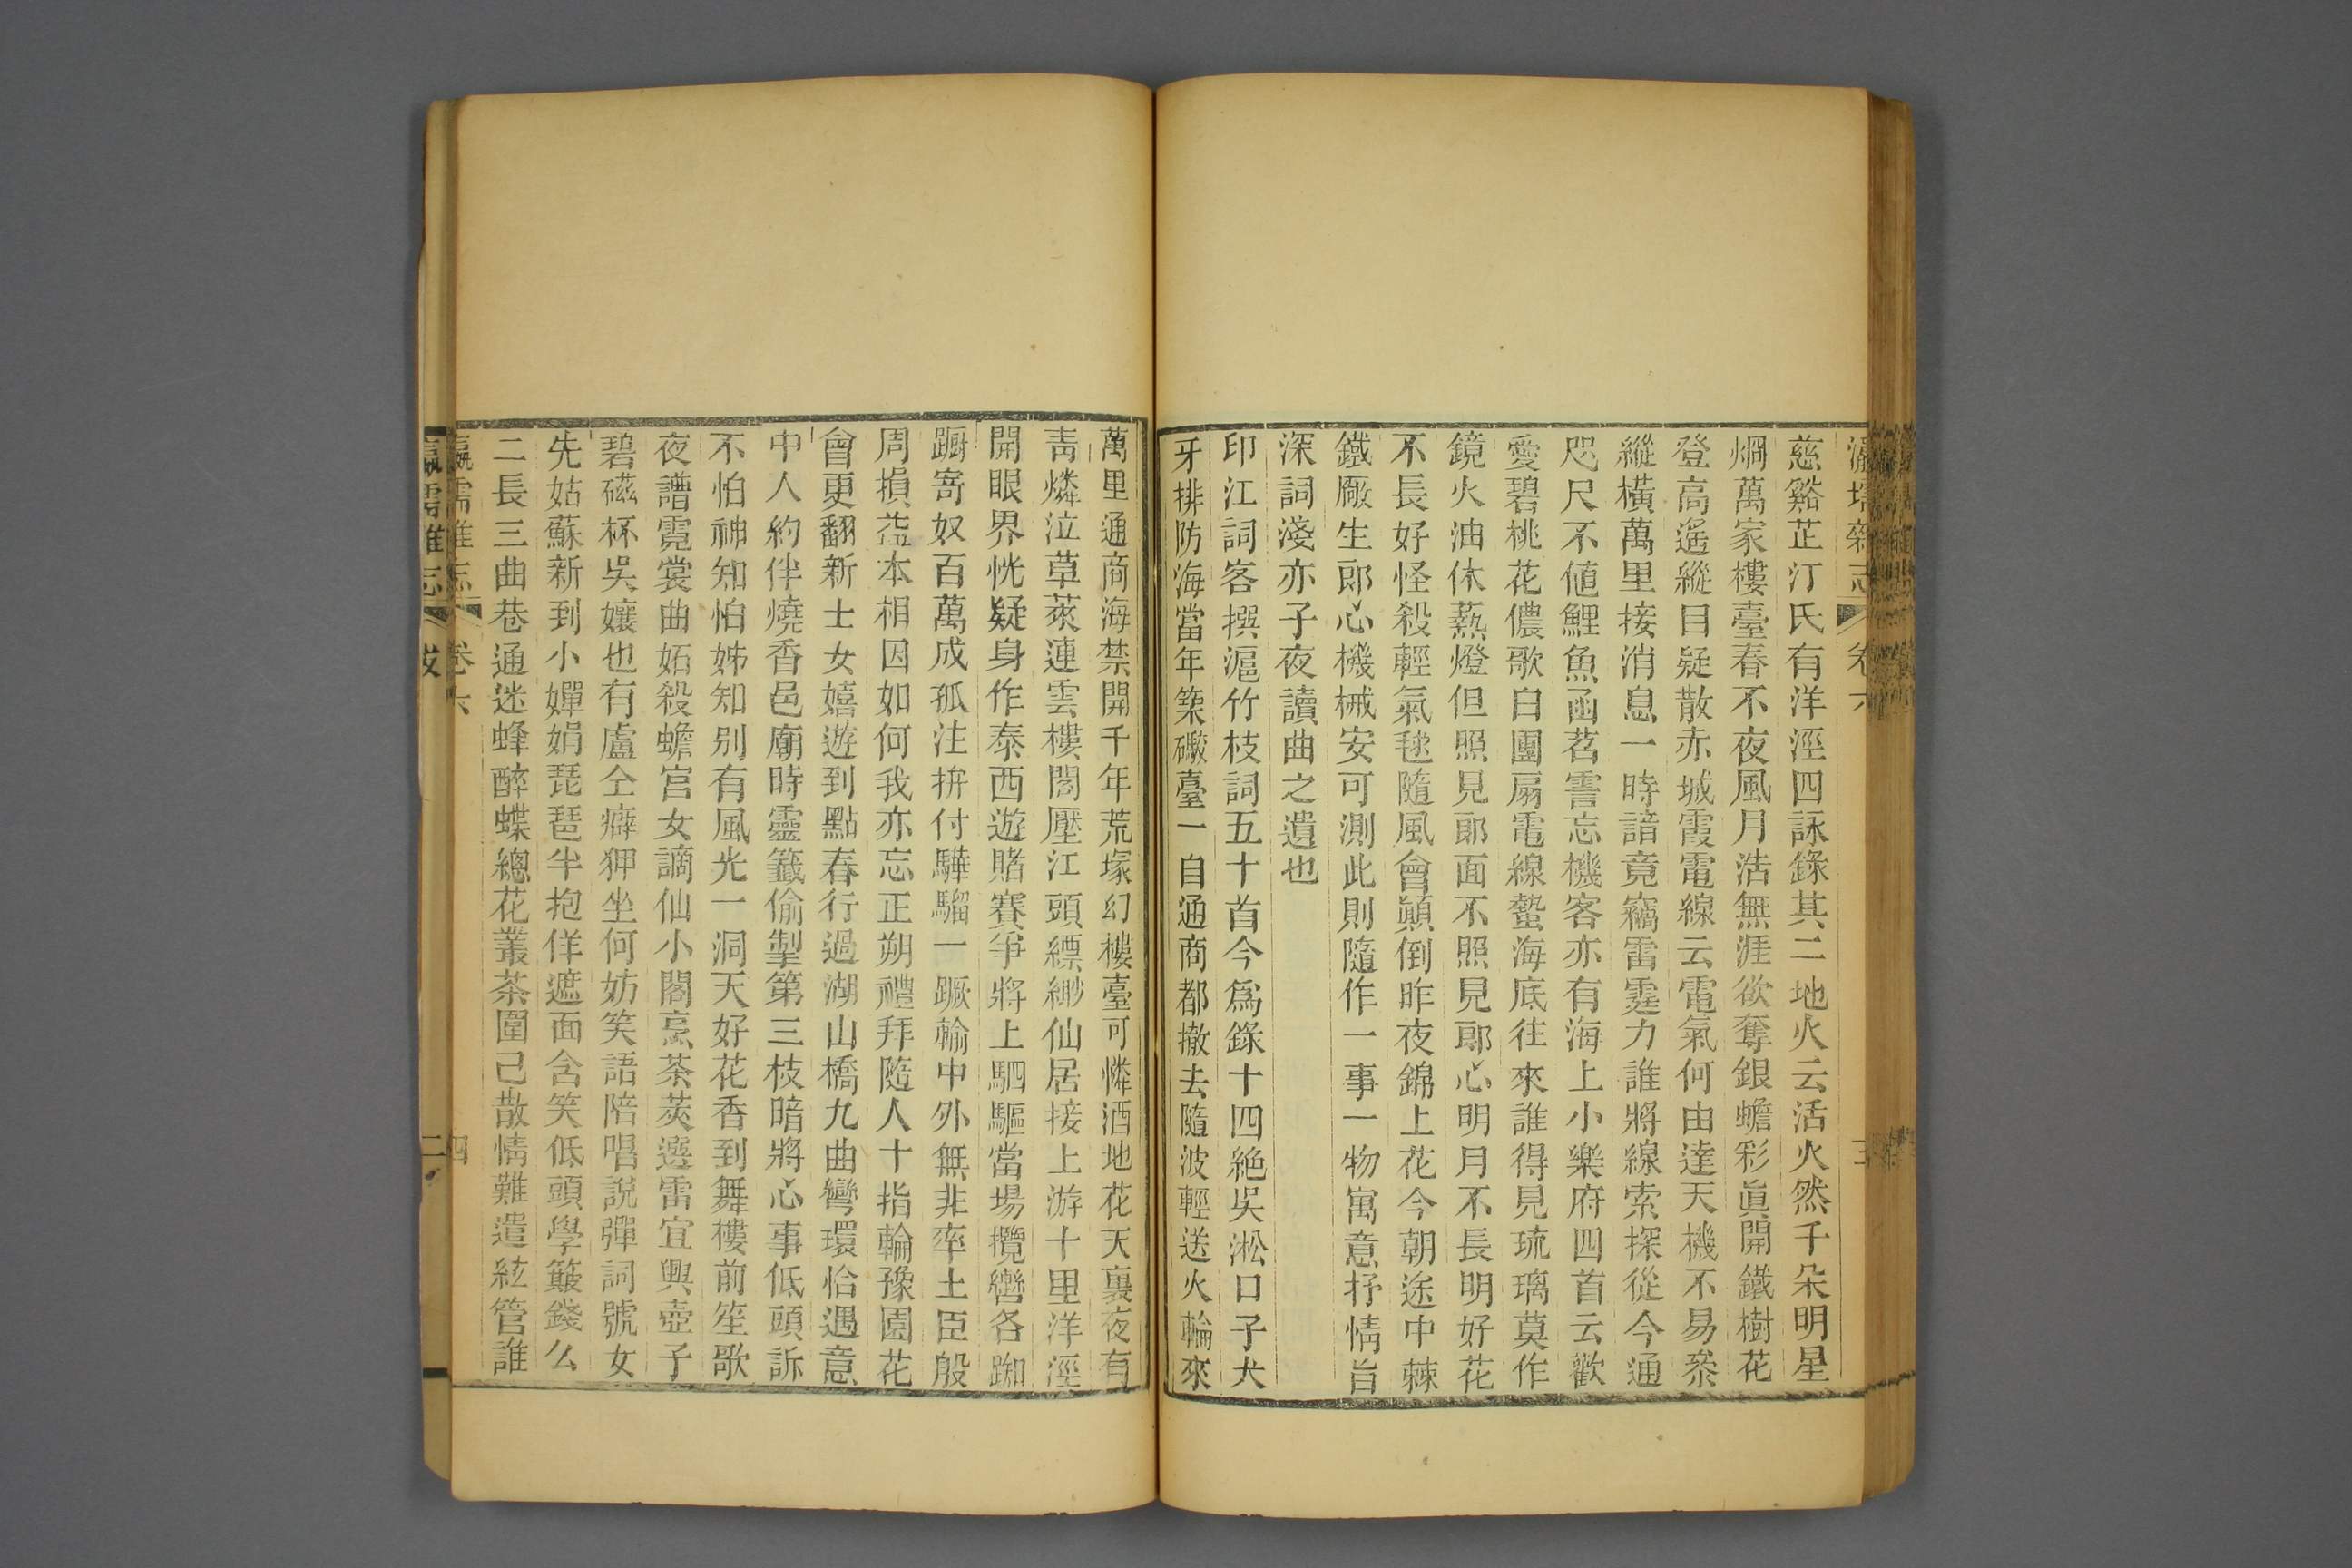 慈谿芷汀氏有洋涇四詠錄其二地火云活火然千朵明星
烱萬家樓臺春不夜風月浩無涯欲奪銀蟾彩眞開鐵樹花
登高遙縱目疑散赤城霞電線云電氣何由達天機不易叅
縱橫萬里接消息一時諳竟竊雷霆力誰將線索探從今通
咫尺不値鯉魚函茗霅忘機客亦有海上小樂府四首云歡
愛碧桃花儂歌白團扇電線蟄海底往來誰得見琉璃莫作
鏡火油休爇燈但照見郞面不照見郞心明月不長明好花
不長好怪殺輕氣毬隨風會顚倒昨夜錦上花今朝途中棘
鐵厰生郞心機械安可測此則隨作一事一物寓意抒情旨
深詞淺亦子夜讀曲之遺也
印江詞客撰滬竹枝詞五十首今爲錄十四絶吳淞口子犬
牙排防海當年築礮臺一自通商都撤去隨波輕送火輪來
萬里通商海禁開千年荒塚幻樓臺可憐酒地花天裏夜有
靑燐泣草萊連雲樓閣壓江頭縹緲仙居接上游十里洋涇
開眼界恍疑身作泰西遊賭賽爭將上駟驅當場攬轡各踟
蹰寄奴百萬成孤注拚付驊騮一蹶輸中外無非率土臣殷
周損益本相因如何我亦忘正朔禮拜隨人十指輪豫園花
會更翻新士女嬉遊到點春行過湖山橋九曲彎環恰遇意
中人約伴燒香邑廟時靈籤偷掣第三枝暗將心事低頭訴
不怕神知怕姊知別有風光一洞天好花香到舞樓前笙歌
夜譜霓裳曲妬殺蟾宮女謫仙小閣烹茶莢選雷宜興壺子
碧磁杯吳孃也有盧仝癖狎坐何妨笑語陪唱說彈詞號女
先姑蘇新到小嬋娟琵琶半抱佯遮面含笑低頭學簸錢么
二長三曲巷通迷蜂醉蝶總花叢茶圍已散情難遣絃管誰
瀛壖雜志 卷六 四